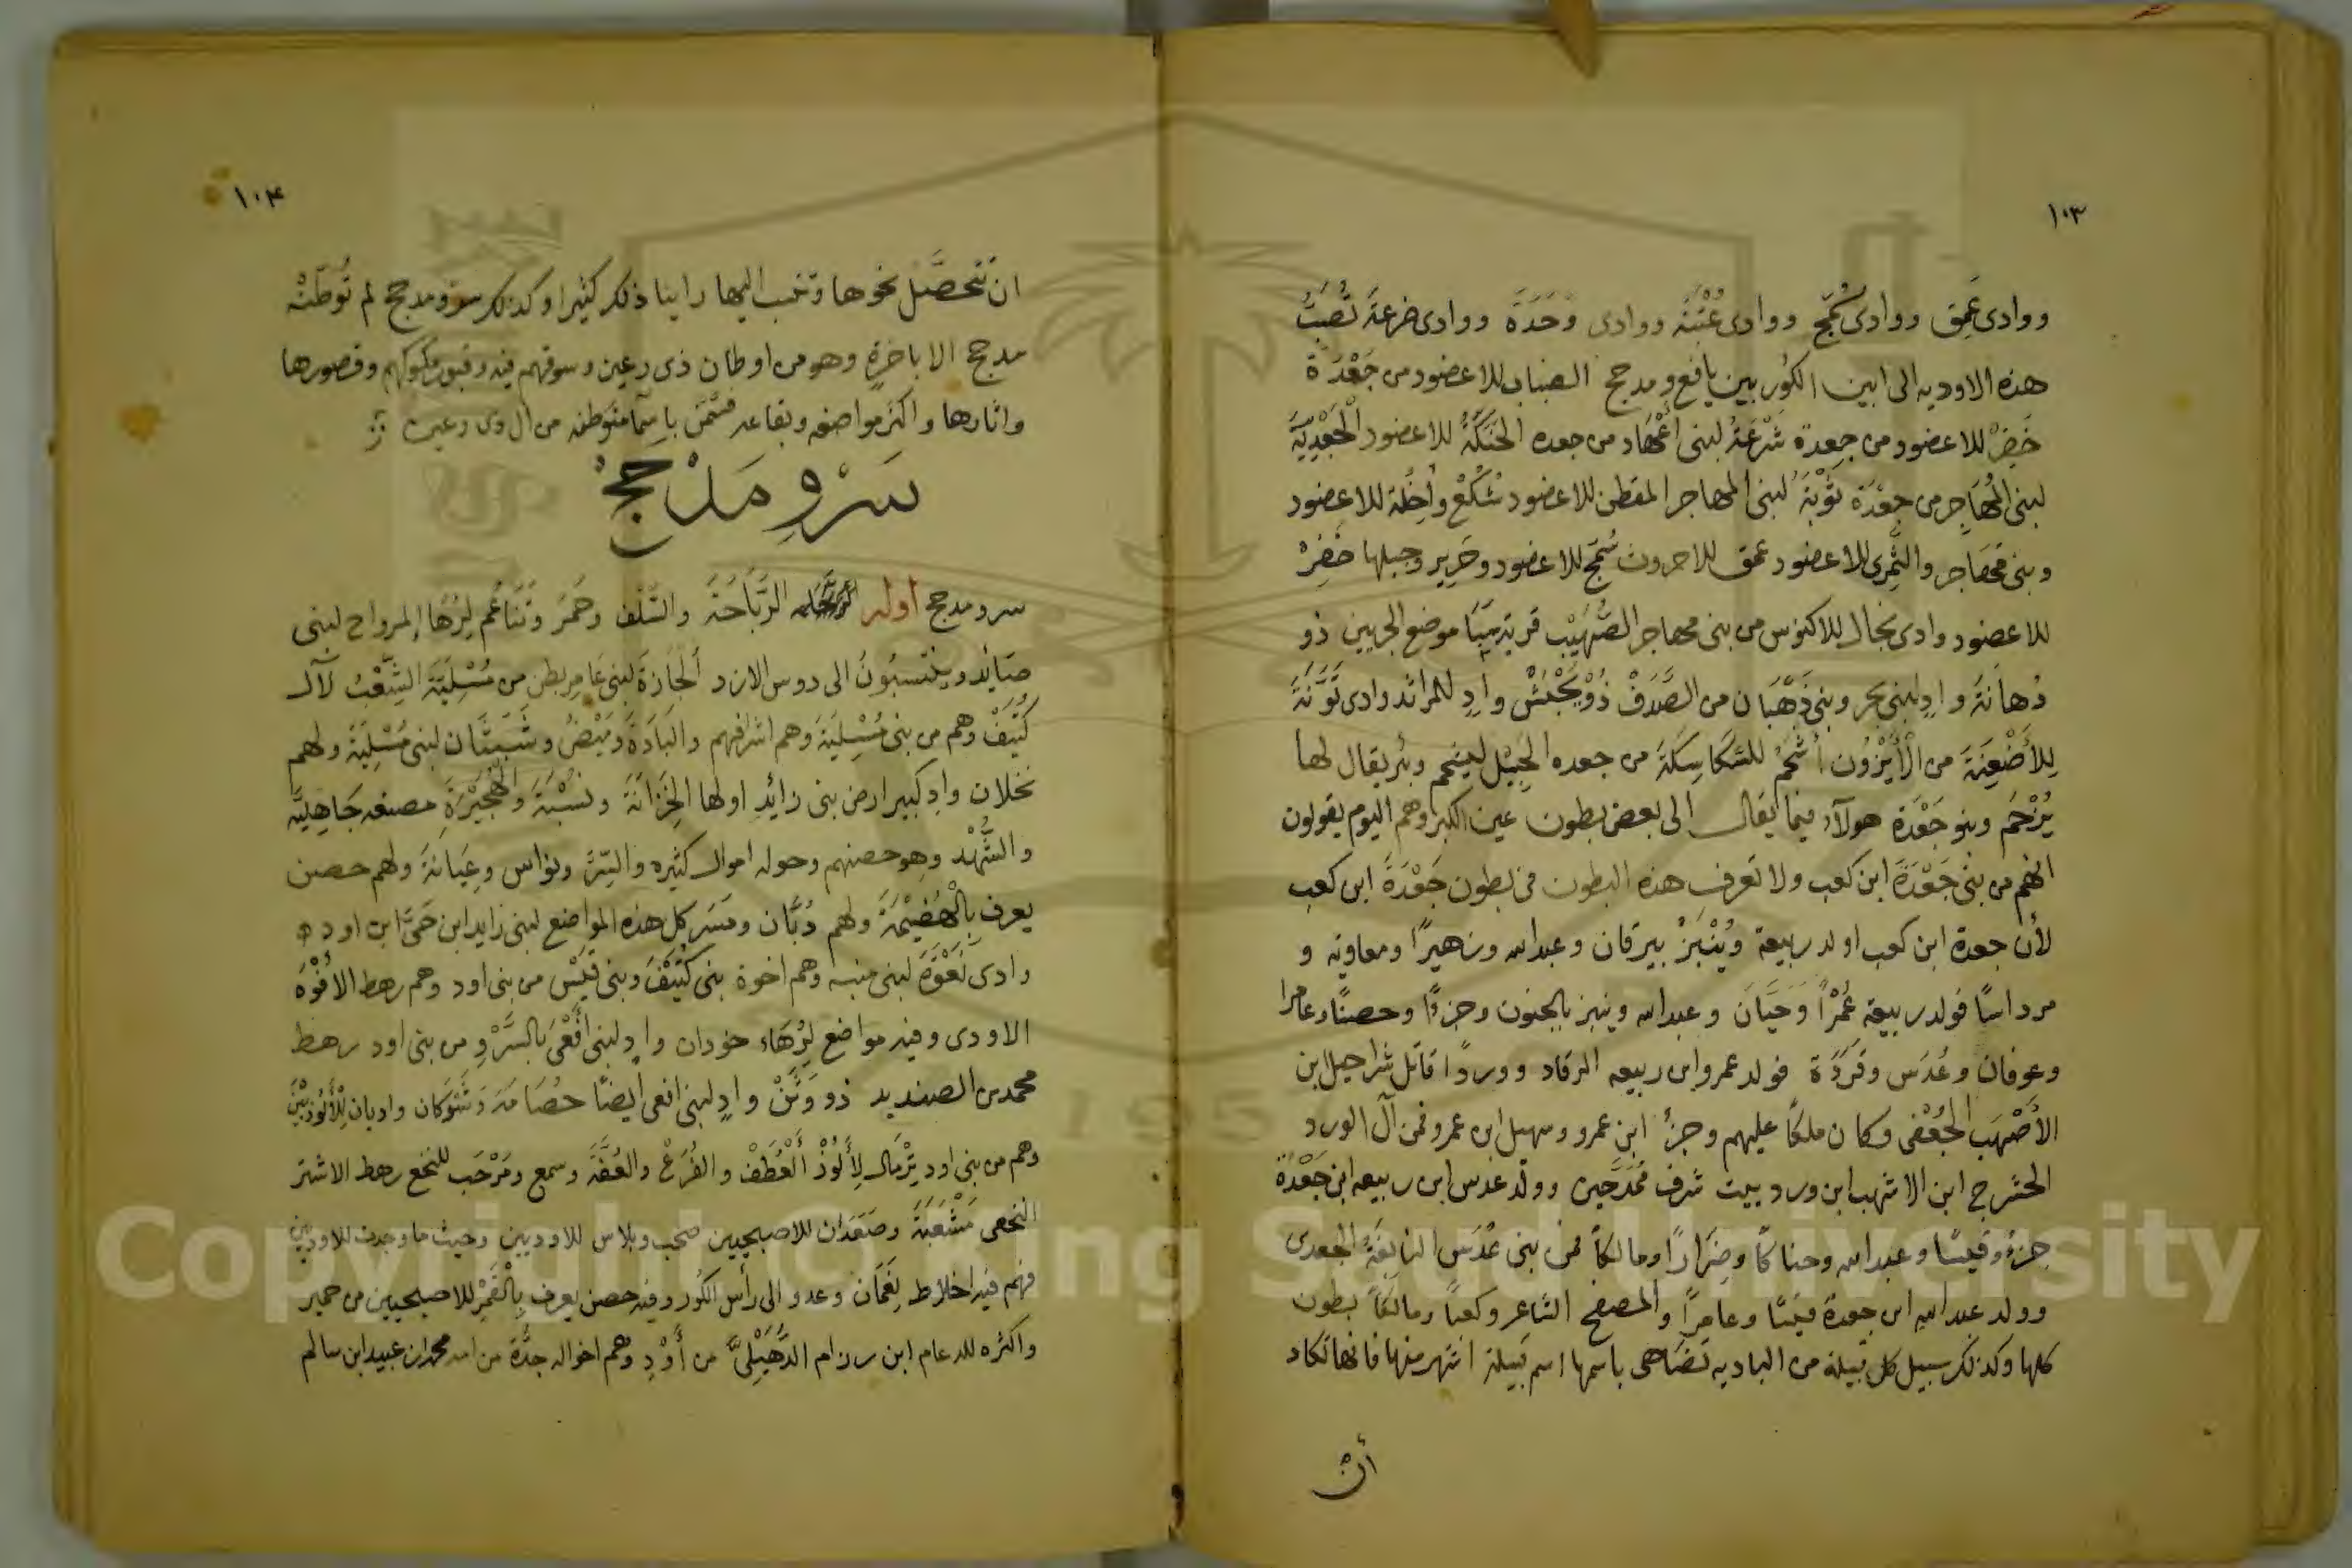 ١٠٣
ووادى عَمِق ووادى سُمَّج ووادى عُتْبَنَه ووادى وَحَدَة ووادى ضرعَة تَصُبُّ
هذه الاوديه الى ابين الكَوُر بين يافع ومدحج الضباب للاعضود من جَعْدَة
خَضِرْ للاعضود من جعدة شَرْعَةُ لبنى اغهاد من جعده الحَنَكَةُ للاعضود الجَعْدِيِّة
لبنى المُهَاجِر من جعْدَة تَوْبَة لبنى المهاجر المقطن للاعضود شُكُعْ وأخِلَّة للاعضود
وبنى مُحَاجر والثَمِرى للاعضود عمق للاحرون سُمَّج للاعضود وحَرِير وجبلها خَضِرْ
للاعضود وادى نخال للاكنوس من بنى مهاجر الصُّهَيْب قرية سَبَا موضع الجرببين ذو
دُهَانَةَ وادٍ لبنى بحر وبنى ذَهْبَان من الصَّدَفْ ذُوْيَجْبُشْ وادٍ للمرائد وادى تَوْنَةَ
لِلأضْعِنَةَ من الأَيْزُون أشحُم للشكاسِكَة من جعده الجِبَيْل ليشحم وبئر يقال لها
يُرْحَم وبنو جَعْدَة هولآء فيما يقال الى بعض بطون عين الكبر وهم اليوم يقولون
انهم من بنى جَعْدَة ابن كعب ولا تعرف هذه البطون من بطون جَعْدَةَ ابن كعب
لأن جعدة ابن كعب اولد ربيعة ويُنْبَزُ بيرقان وعبدالله وزهيرًا ومعاوية و
مرداسًا فولد ربيعة عُمْرًا وَحَيَّانَ وعبدالله وينبز بالجنون وجزءًا وحصنًا وعامرا
وعوفان وعُدَس وقَرَدَة فولد عمرو ابن ربيعه الرقاد ووردًا قاتل شراحيل ابن
الأَصْهَب الجُعْفى وكان ملكًا عليهم وجزءُ ابن عمرو وسهيل ابن عمرو فمن آل الورد
الحشرج ابن الاشهب ابن ورد بيت شرف مُمَدَّحين وولد عدس ابن ربيعه ابن جَعْدَة
جزءُ وقيسًا وعبدالله وحناكًا وضِرَارًا ومالكاً فمن بنى عُدَس النابغَةُ الجعدى
وولد عبدالله ابن جعدة قيسًا وعامِرًا والمصفح الشاعر وكعبًا ومالكاً بطون
كلها وكذلك سبيل كل قبيلة من الباديه تضاهى باسمها اسم قبيلة اشهر منها فانها تكاد
أن
١٠٤
ان تتحصَّل نحوها وتنسب اليها راينا ذلك كثيرا وكذلك سرو مدحج لم تُوطِنْه
مدحج الا باخرةٍ وهو من اوطان ذى رعين وسوقهم فيه وقبور ملوكهم وقصورها
واثارها واكثر مواضعه وبقاعه متسَمّى باسمآ متوطنه من ال ذى رعين
سَرْوِ مَدْحج
سرو مدحج اوله الرَّبَاحَةَ والسَّلْف وحَمَرَ وتَنَاعُم لِرُهَا المرواح لبنى
صَايد وينتسبُونُ الى دوس الازد الجَازَةَ لبنى عَامِر بطن من مُسْلِيَّة الشَعْبُ لآل
كُتَيف وهم من بنى مُسْلِيَة وهم اشرافهم والبَادَة ومَيْضُ وشَبَتَان لبنى مُسْلِيَّة ولهم
نخلان وادٍ كبير ارض بنى زائد اولها الخَزَانَةَ ونِسْبَة والهُجَيْرَةِ مصنعه جَاهِلِيَّه
والشَّهْد وهو حصنهم وحوله اموال كثيره والبِّرّ ونواس وعِبَانَة ولهم حصن
يعرف بِالْهَضِيْمَةَ ولهم دُبَّان ومَسَر كل هذه المواضع لبنى زايد ابن حَىّ ابن اود
وادى نَعْوَة لبنى منبه وهم اخوة بنى كُتَيْفَ وبنى قَيْسْ من بنى اود وهم رهط الافُوْه
الاودى وفيه مواضع لِرُهَاء خودان وادٍ لبنى افْعَى بالسَّرْوِ من بنى اود رهط
محمد بن الصنديد ذو وَثَنْ وادٍ لبنى افعى ايضًا حُصَامَة وشَوْكان واديان للأَلُوْذِيِّيْنَ
وهم من بنى اود يَرْمَال لِأَلُوذْ العُطَفْ والفُرَعْ والعُقَّه وسمع ومَرْحَب للنخع رهط الاشتر
النخعى مَشْعَبَةَ وصَعَدَان للاصبحيين صحب وبلاس للاوديين وحيث ما وجدت للاوديين
فهم فيه اخلاط نَعَمَان وعدو الى رأس الكَور وفيه حصن يعرف بِالْقَمْر للاصبحيين من حمير
واكثره للدعام ابن رزام الدُّهَيْلِىّ من أَوْدٍ وهم اخواله جدُّة من امه محمد ابن عبيد ابن سالم
Copyright © King Saud University
195